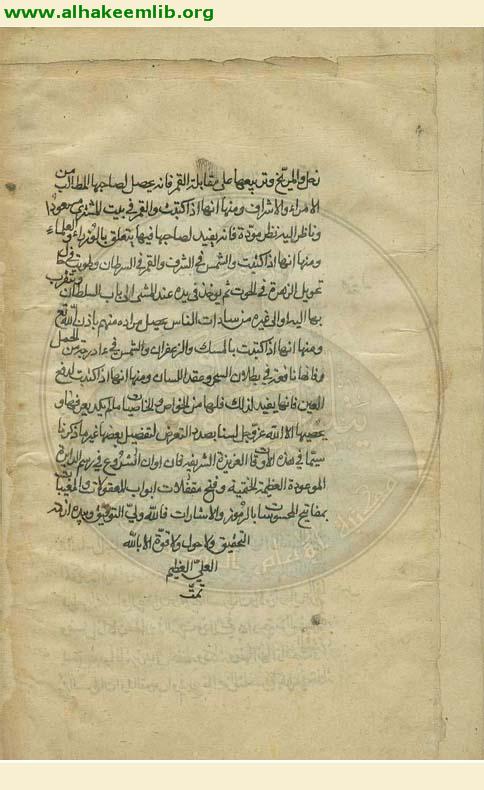 www.alhakeemlib.org
زحل والمريخ وتربيعها على مقابلة القمر فانه يحصل لصاحبها المطالب من
الامراء والاشراف ومنها انها اذا كتبت والقمر في بيت المشتري مسعودا
وناظر اليه نظر مودة فانه يفيد لصاحبها فيما يتعلق بالوزراء والعلماء
ومنها انها اذا كتبت والشمس في الشرف والقمر في السرطان وطويت في
تحويل الزهرة في الحوت ثم يؤخذ في يده عند المشي الى باب السلطان ويتقرب
بها اليه والى غيره من سادات الناس يحصل مراده منهم باذن الله تع
ومنها انها اذا كتبت بالمسك والزعفران والشمس في درجة من الحمل
فانها نافعة في بطلان السحر وعقد اللسان ومنها انها اذا كتبت لدفع
العين فانها يفيد لذلك فلها من الخواص والخاصيات ما لم يكد يعرفها و
يحصيها الا الله عز وجل لسنا بصدد التعرض لتفصيل بعضها غير ما ذكرنا
سيما في هذه الاوقات العزيزة الشريفة فان اوان الشروع في رسم الدايرة
الموعودة العظيمة الختمية وفتح مقفلات ابواب المعقولات والمغيبات
بمفاتيح المحسوسات بالرموز والاشارات فالله ولي التوفيق وبيده ازمة
التحقيق ولا حول ولا قوة الا بالله
العلي العظيم
تمت